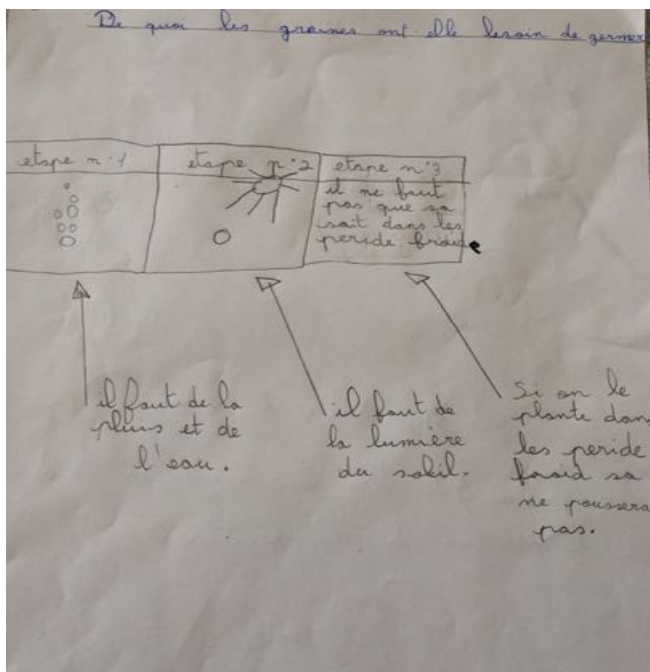 De quoi les graines ont elle besoin de germer
etape n°1
etape n°2
etape n°3
il ne faut
pas que sa
soit dans les
peride froide
il faut de la
pluis et de
l'eau.
il faut de
la lumière
du soleil.
Si on le
plante dans
les peride
froid sa
ne poussera
pas.